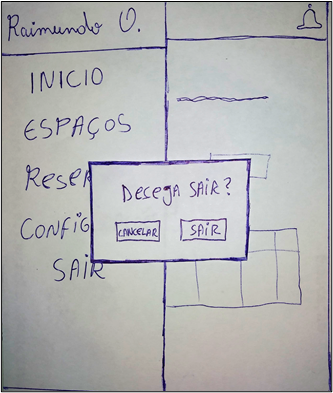 Raimundo O.
INICIO
ESPAÇOS
RESER
CONFIG
SAIR
DESEGA SAIR?
CANCELAR
SAIR